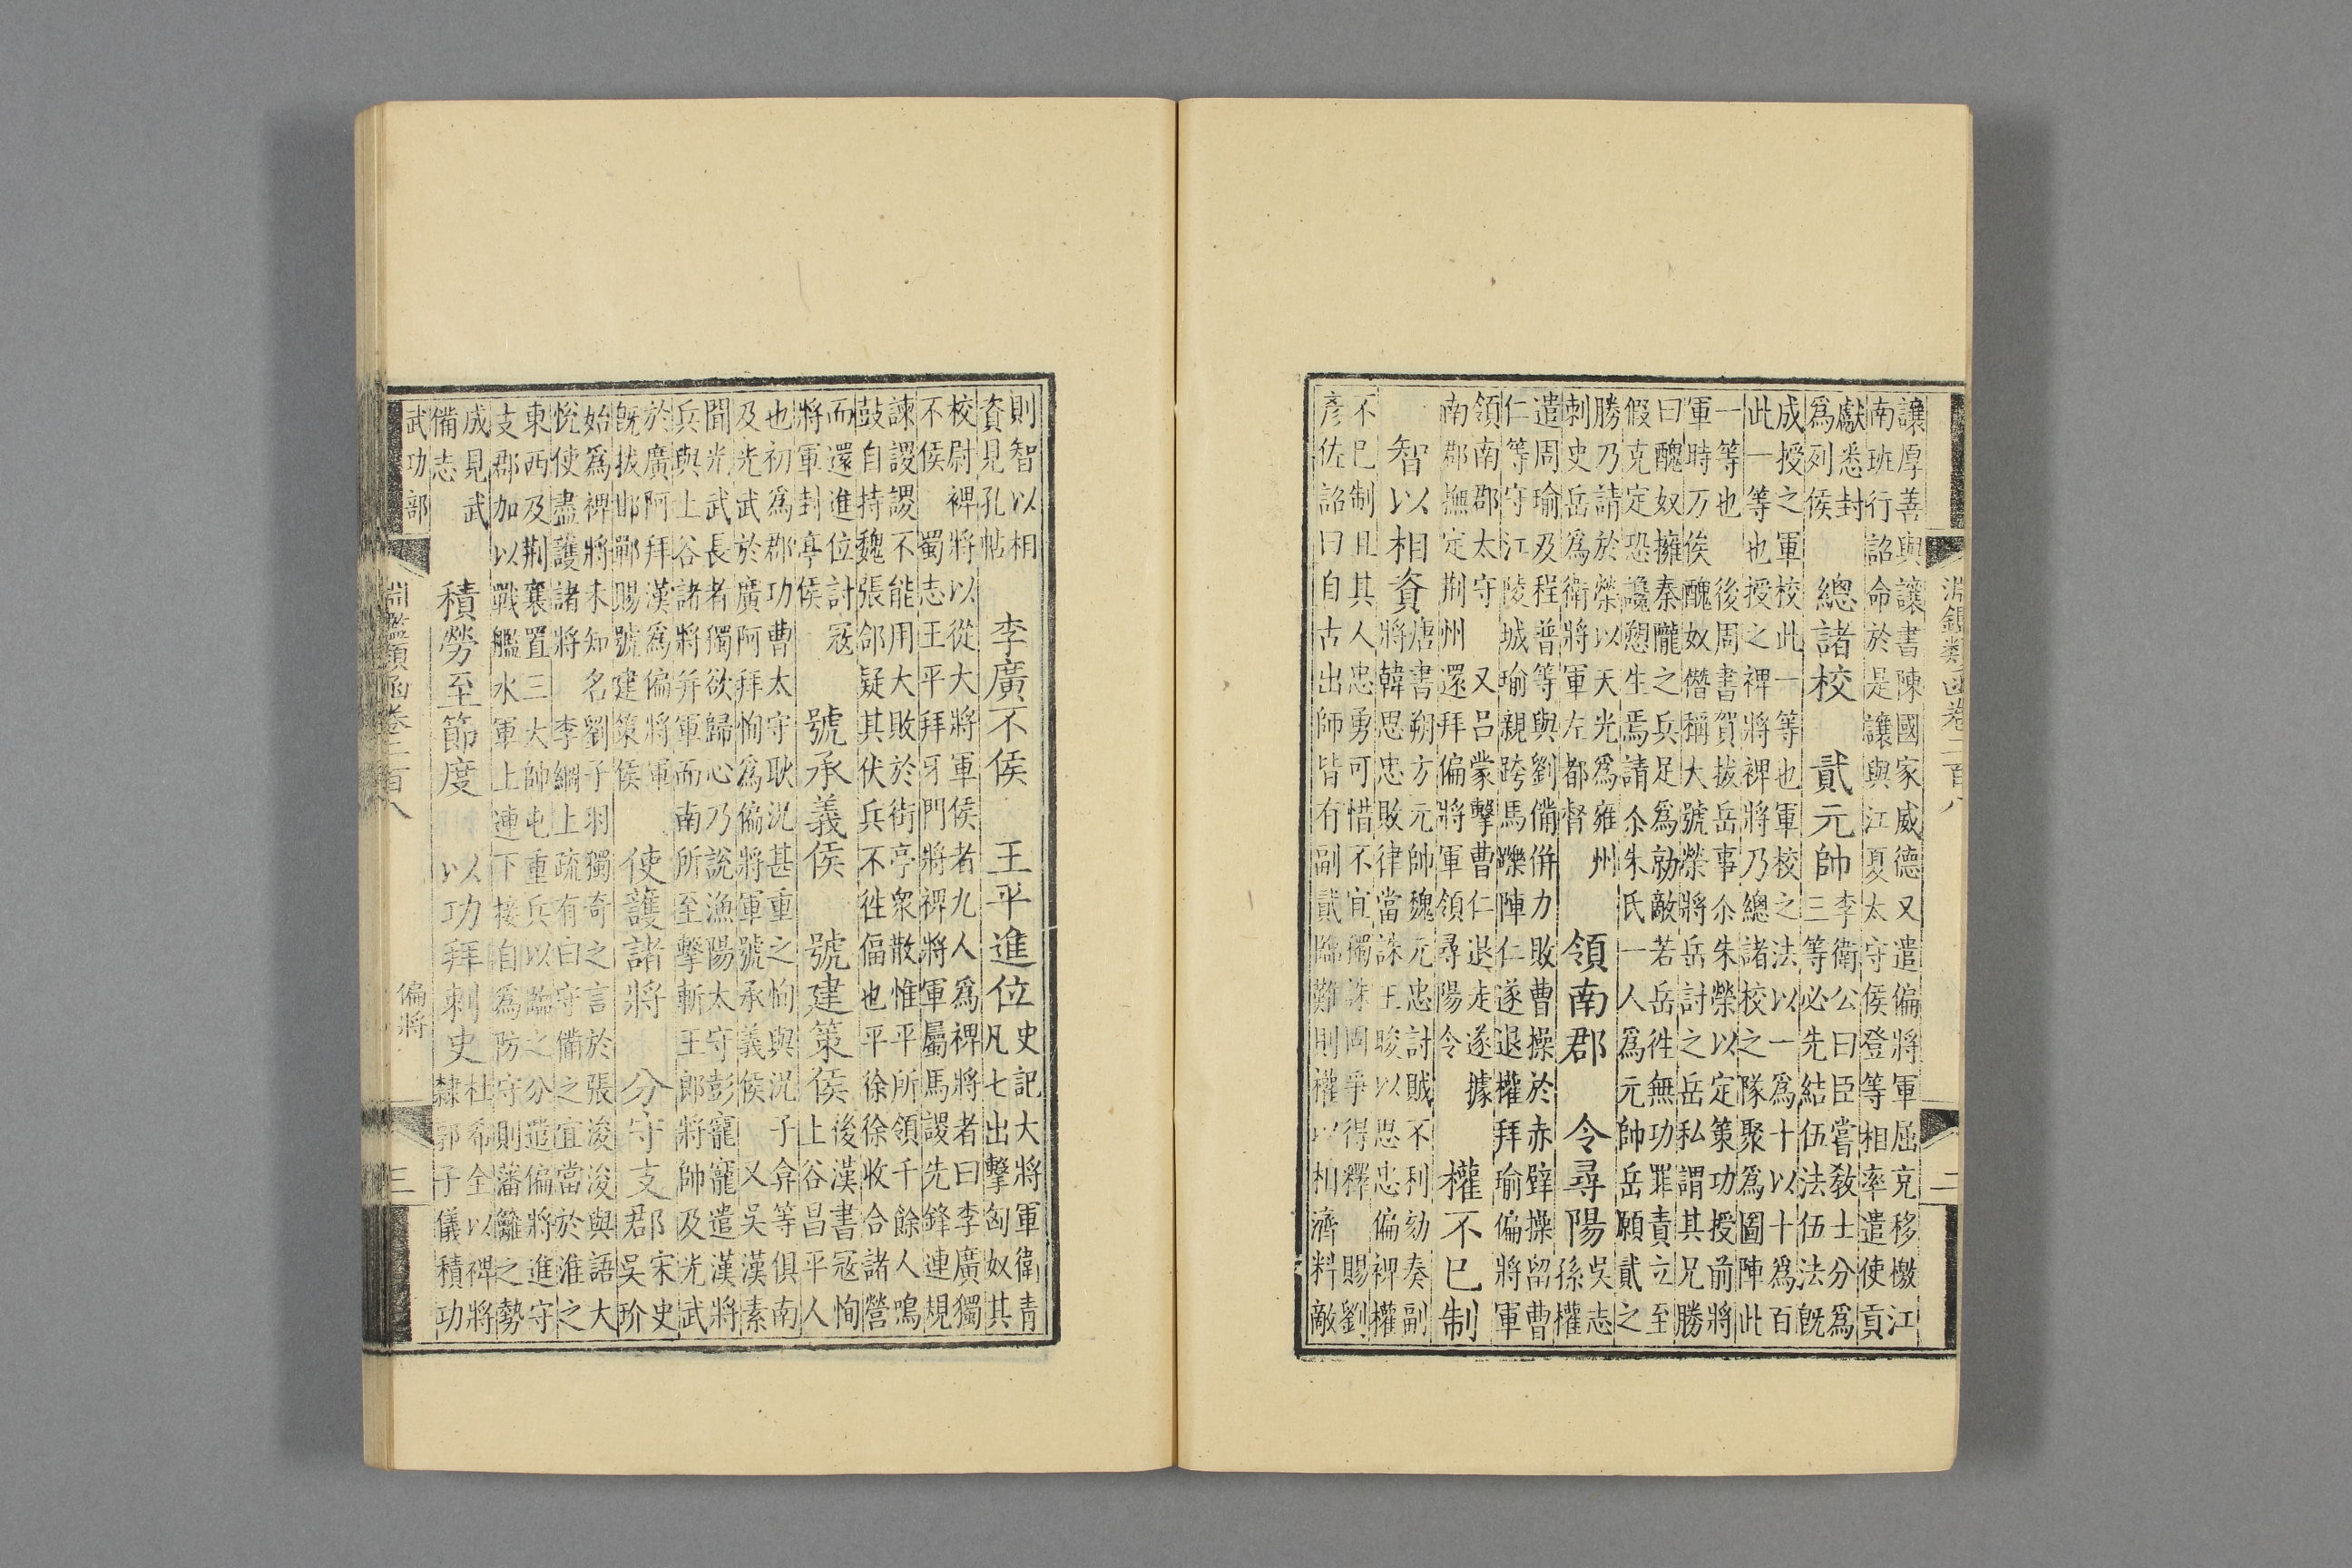 淵鑑類函卷二百八 二
讓厚善與讓書陳國家威德又遣偏將軍屈充移檄江
南班行詔命於是讓與江夏太守侯登等相率遣使貢
獻悉封
為列侯
總諸校 貳元帥
李衛公曰臣嘗敎士分為
三等必先結伍法伍法旣
成授之軍校此一等也軍校之法以一為十以十為百
此一等也授之裨將裨將乃總諸校之隊聚為圖陣此
一等也 後周書賀拔岳事尒朱榮以定策功授前將
軍時万俟醜奴僭稱大號榮將岳討之岳私謂其兄勝
曰醜奴擁秦隴之兵足為勍敵若岳徃無功罪責立至
假克定恐讒愬生焉請尒朱氏一人為元帥岳願貳之
勝乃請於榮以天光為雍州
刺史岳為衛將軍左都督
領南郡 令尋陽
吳志
孫權
遣周瑜及程普等與劉備併力敗曹操於赤壁操留曹
仁等守江陵城瑜親跨馬擽陣仁遂退權拜瑜偏將軍
領南郡太守 又呂蒙擊曹仁退走遂據
南郡撫定荆州還拜偏將軍領尋陽令
權不已制
智以相資
唐書朔方元帥魏元忠討賊不利劾奏副
將韓思忠敗律當誅王晙以思忠偏裨權
不已制且其人忠勇可惜不宜獨誅固爭得釋 賜劉
彥佐詔曰自古出師皆有副貳臨難則權以相濟料敵
則智以相
資見孔帖
李廣不侯 王平進位
史記大將軍衛青
凡七出擊匈奴其
校尉裨將以從大將軍侯者九人為裨將者曰李廣獨
不侯 蜀志王平拜牙門將裨將軍屬馬謖先鋒連規
諫謖謖不能用大敗於街亭衆散惟平所領千餘人鳴
鼓自持魏張郃疑其伏兵不徃偪也平徐徐收合諸營
而還進位討寇
將軍封亭侯
號承義侯 號建策侯
後漢書寇恂
上谷昌平人
也初為郡功曹太守耿況甚重之恂與況子弇等俱南
及光武於廣阿拜恂為偏將軍號承義侯 又吳漢素
聞光武長者獨欲歸心乃說漁陽太守彭寵寵遣漢將
兵與上谷諸將幷軍而南所至擊斬王郎將帥及光武
於廣阿拜漢為偏將軍
旣拔邯鄲賜號建策侯
使護諸將 分守支郡
宋史
吳玠
始為裨將未知名劉子羽獨奇之言於張浚浚與語大
悅使盡護諸將 李綱上疏有曰守備之宜當於淮之
東西及荆襄置三大帥屯重兵以臨之分遣偏將進守
支郡加以戰艦水軍上連下接自為防守則藩籬之勢
成見武
備志
積勞至節度 以功拜刺史
杜希全以裨將
隸郭子儀積功
武功部 淵鑑類函卷二百八 偏將 三